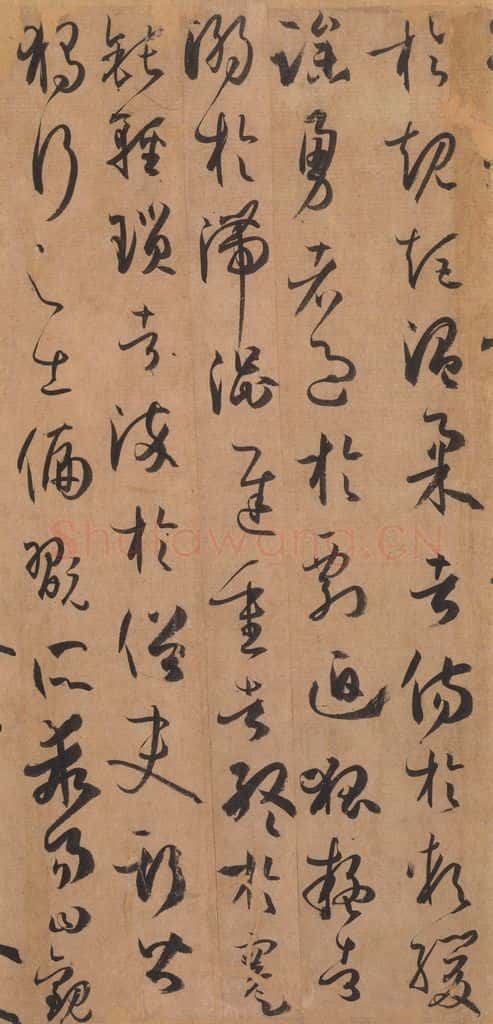 於規矩溫柔者傷於軟緩
躁勇者過於剽迫狐疑者
溺於滯澀遲重者終於蹇
鈍輕瑣者染於俗吏斯皆
獨行之士偏翫所乖易曰觀
Shufawang.CN